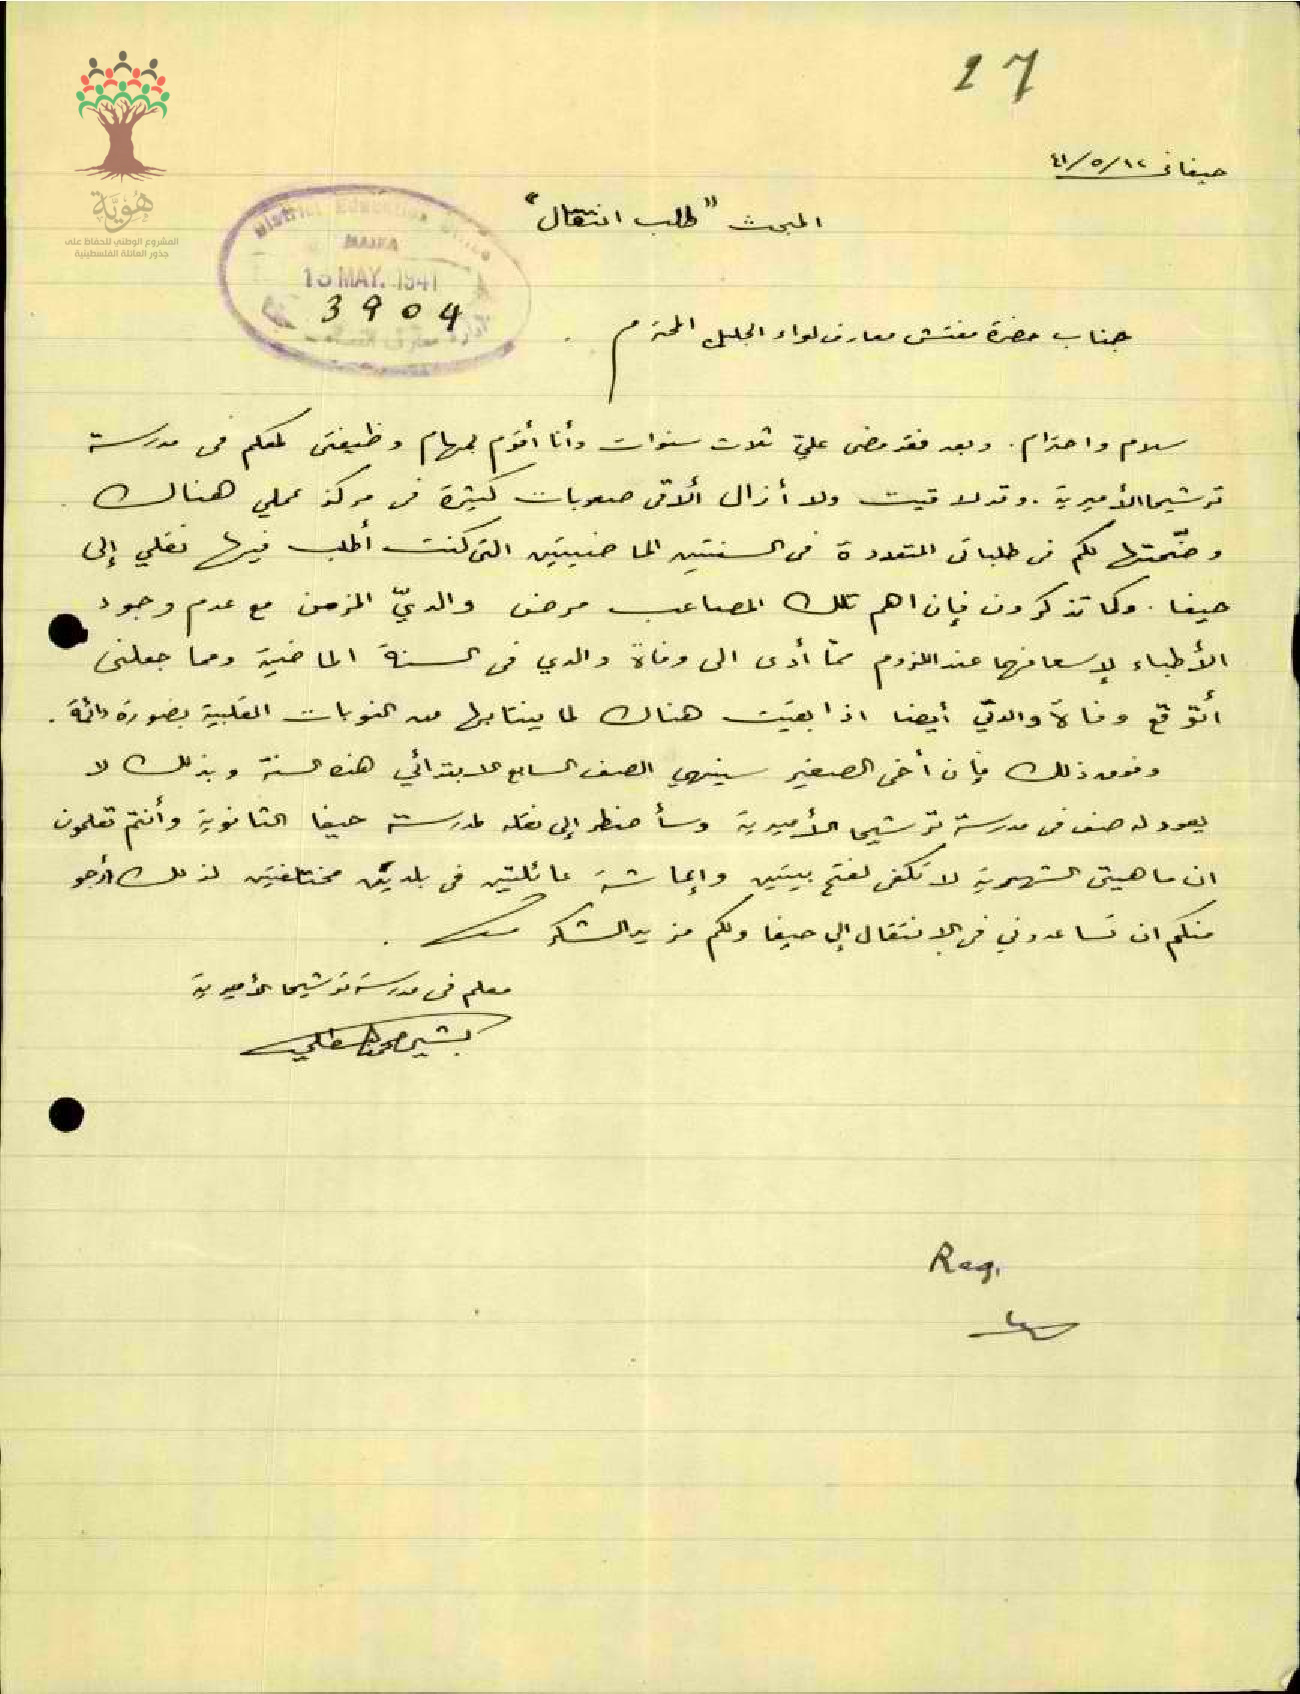 17
هُوِيَّة
المشروع الوطني للحفاظ على
جذور العائلة الفلسطينية
حيفا في ١٢/٥/٤١
المبحث "طلب انتقال"
District Education Office
HAIFA
13 MAY. 1941
3904
جناب حضرة مفتش معارف لواء الجليل المحترم
سلام واحترام. وبعد فقد مضى عليّ ثلاث سنوات وأنا أقوم بمهام وظيفتي كمعلم في مدرسة
ترشيحا الأميرية. وقد لاقيت ولا أزال ألاقي صعوبات كثيرة في مركز عملي هناك
وضّحتها لكم في طلباتي المتعددة في السنتين الماضيتين التي كنت أطلب فيها نقلي إلى
حيفا. وكما تذكرون فإن اهم تلك المصاعب مرض والديّ المزمن مع عدم وجود
الأطباء لإسعافهما عند اللزوم ممّا أدى الى وفاة والدي في السنة الماضية ومما جعلني
أتوقع وفاة والدتي أيضا اذا بقيت هناك لما ينتابها من النوبات القلبية بصورة دائمة.
وفوق ذلك فإن أخي الصغير سينهي الصف السابع الابتدائي هذه السنة وبذلك لا
يعود له صف في مدرسة ترشيحا الأميرية وسأضطر إلى نقله لمدرسة حيفا الثانوية وأنتم تعلمون
ان ماهيتي الشهرية لا تكفي لفتح بيتين وإعاشة عائلتين في بلدين مختلفتين لذلك أرجو
منكم ان تساعدوني في الانتقال إلى حيفا ولكم مزيد الشكر
معلم في مدرسة ترشيحا الأميرية
بشير محمد
Reg.